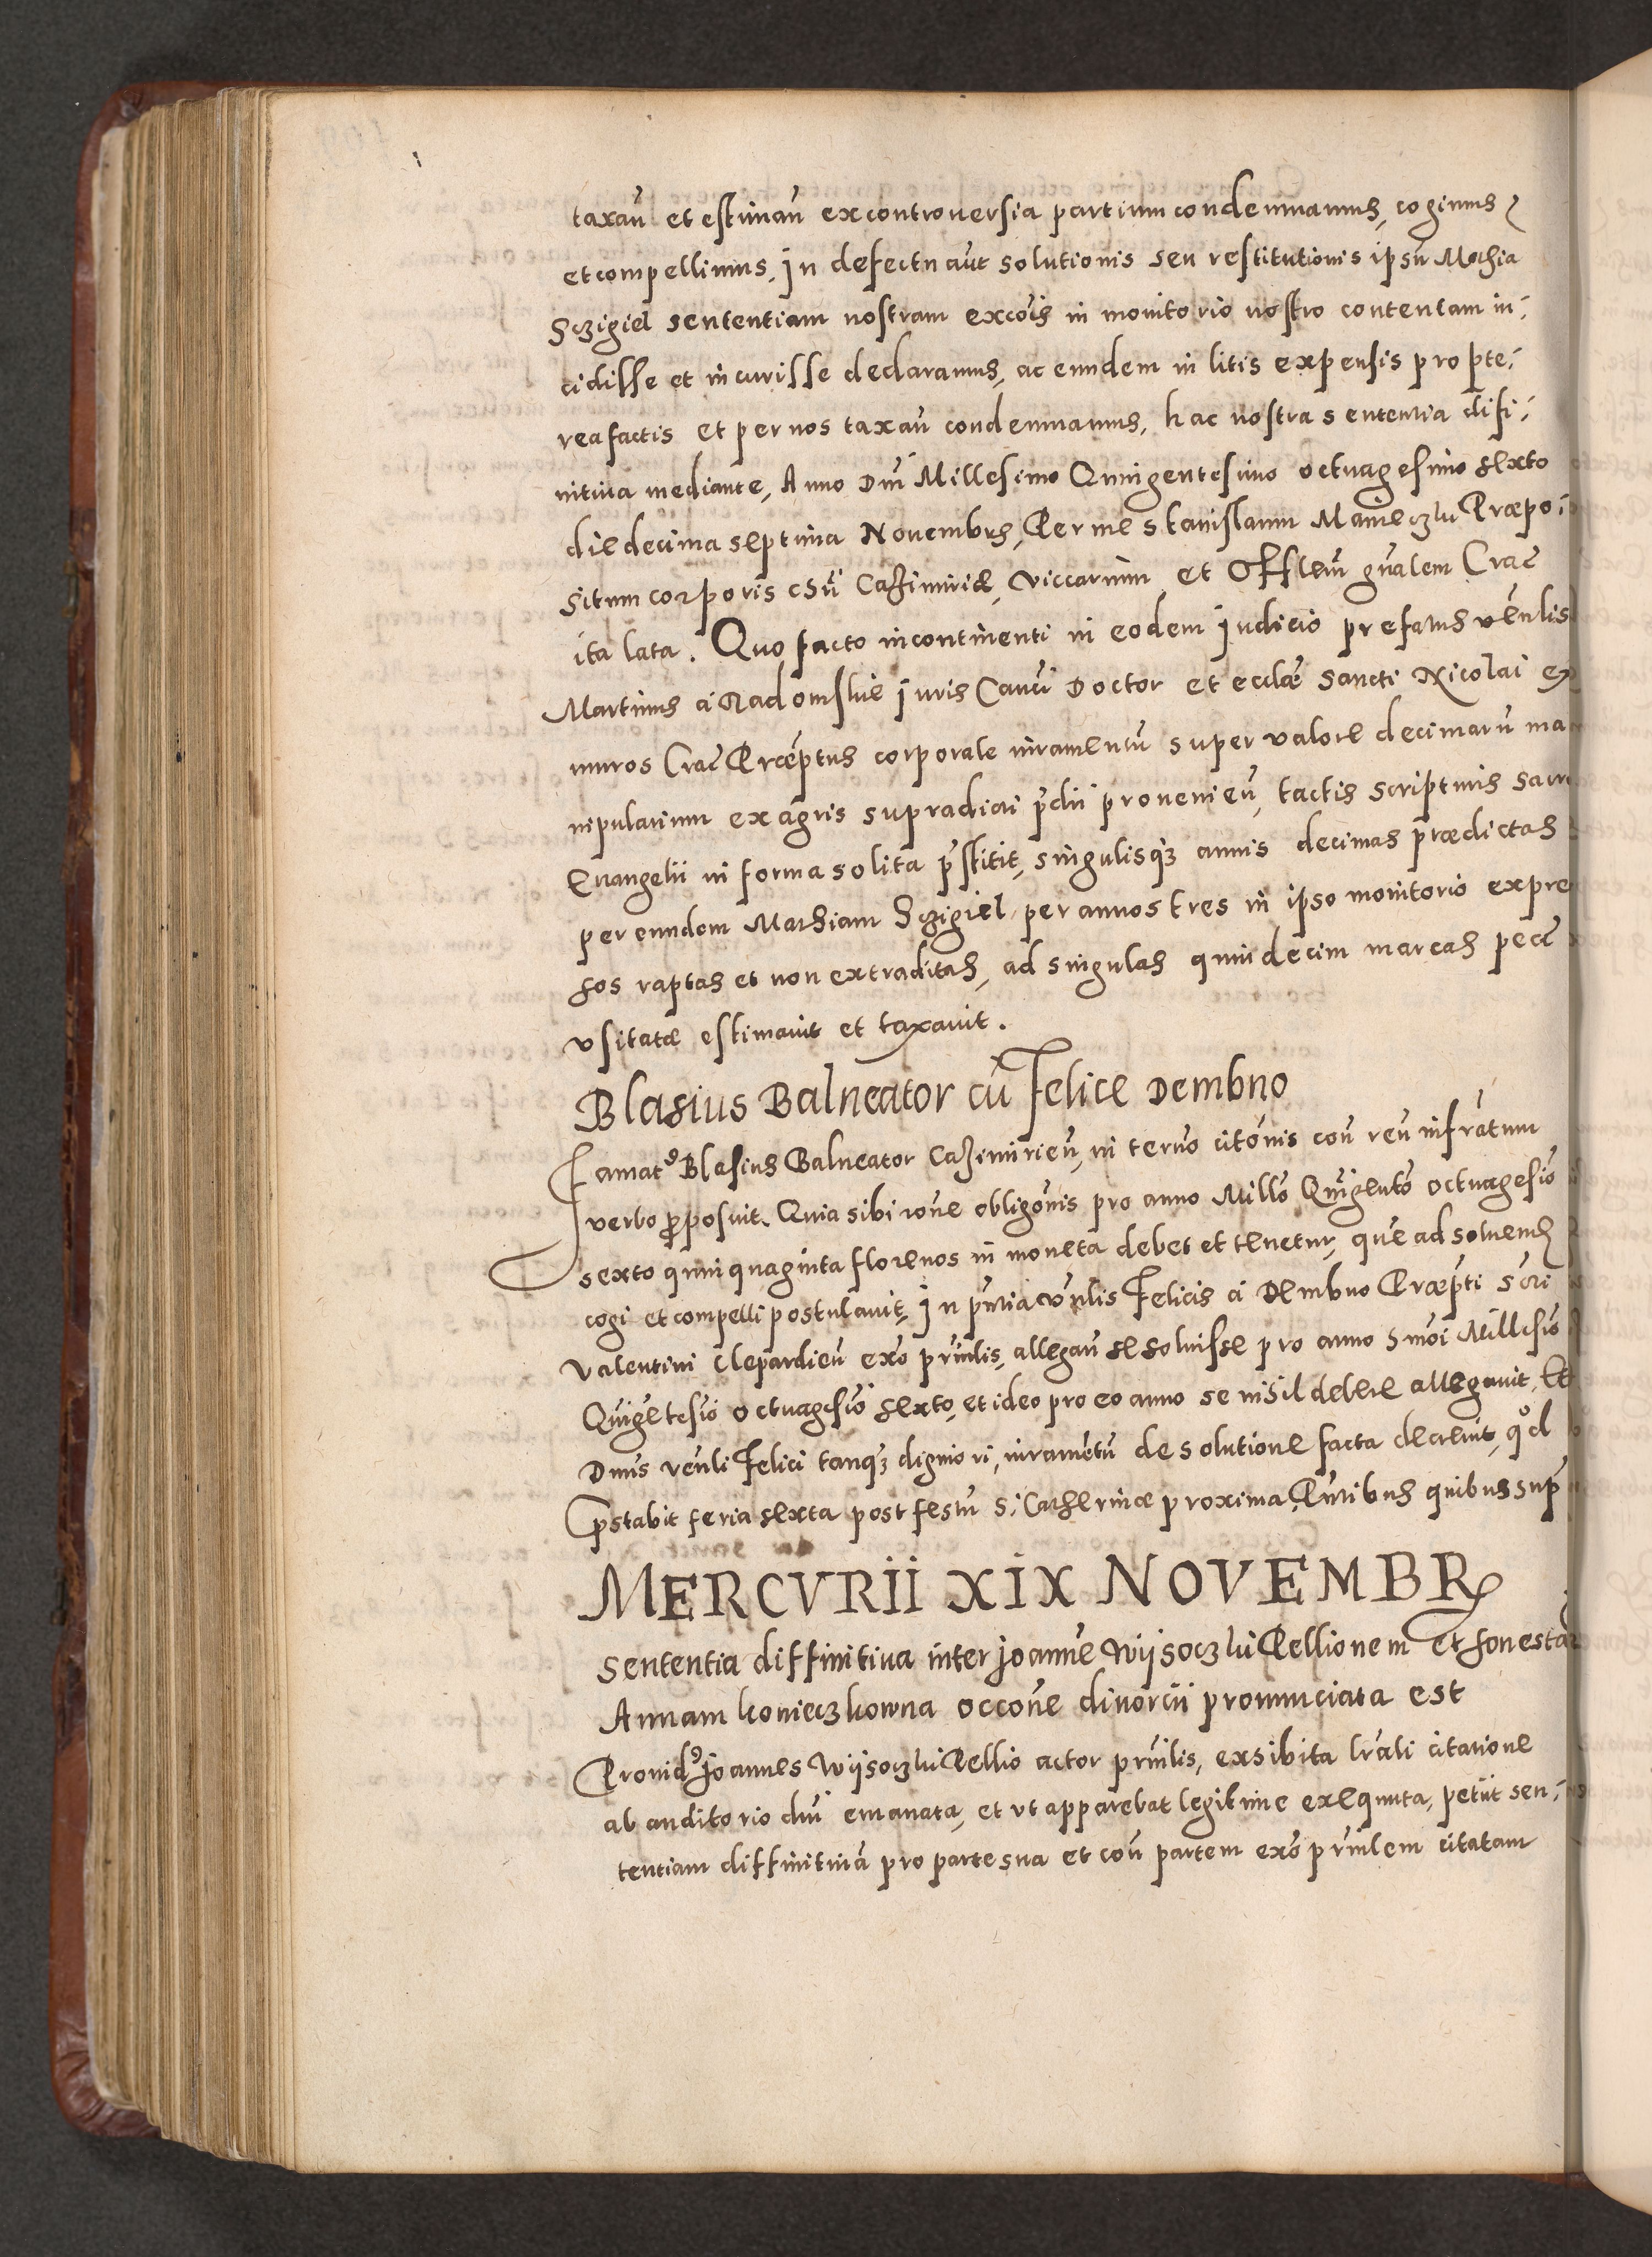 taxaū et estimaū ex controuersia partium condemnamus, cogimus
et compellimus, in defectu aūt solutionis seu restitutionis ipsū Mathia
Sczigiel sententiam nostram excōis in monitorio nostro contentam in-
cidisse et incurisse declaramus, ac eundem in litis expensis propte-
rea factis et per nos taxaū condemnamus, hac nostra sententia difi-
nitiua mediante, Anno Dnī Millesimo Quingentesimo octuagesimo sexto
die decima septima Nouembris, Per me Stanislaum Præpo-
situm corporis Chrī Cazimiriæ, viccarium et Offlem gnālem Crac̄
ita lata. Quo facto incontinenti in eodem iudicio prefatus vēnlis
Martinus à Radomskie iuris Canci Doctor et ecclæ Sancti Nicolai ex
muros Crac̄ Præptus corporale iuramentū super valore decimarū ma
nipularium ex agris supradicti p̄dii prouenieū, tactis scripturis sacr
Euangelii in forma solita p̄stitit, singulisq3 annis decimas prædictas
per eundem Mathiam Sczigiel per annos tres in ipso monitorio expre
sos raptas et non extraditas, ad singulas quindecim marcas pecc̄
vsitatæ estimauit et taxauit.
Blasius Balneator cū Felice Dembno
Famat9 Blasius Balneator Cazimirieū, in teruo citōnis coū reū infratum
verbo proposuit. Quia sibi rōne obligōnis pro anno Millō Quīgentō octuagesīo
sexto quinquaginta florenos in moneta debet et tenetur, que ad soluend
cogi et compelli postulauit, in pn̄tia vēnlis Felicis à Dembno Præpti Scti
Valentini Clepardieū exō prn̄lis, allegaū se soluisse pro anno Millesīo
Quīgetesīo octuagesīo sexto, et ideo pro eo anno se nihil debere allegauit, Et
Dnūs venli Felici tanq3 digniori, iuramētū de solutione facta decreuit, qōd
p̄stabit feria sexta post festū S. Catherinæ proxima, Pn̄tibus quibus sup̄
MERCVRII XIX NOVEMBR
Sententia diffinitiua inter Joannē Wijsoczki Pellionem et honestā
Annam konieczkowna occōne diuorcii pronunciata est
Prouid9 Joannes Wijsoczki Pellio actor prn̄lis, exhibita lrāli citatione
ab auditorio dnī emanata, et vt apparebat legitime exequuta, petiit sen-
tentiam diffinitiuā pro parte sua et coū partem exō prn̄lem citatam